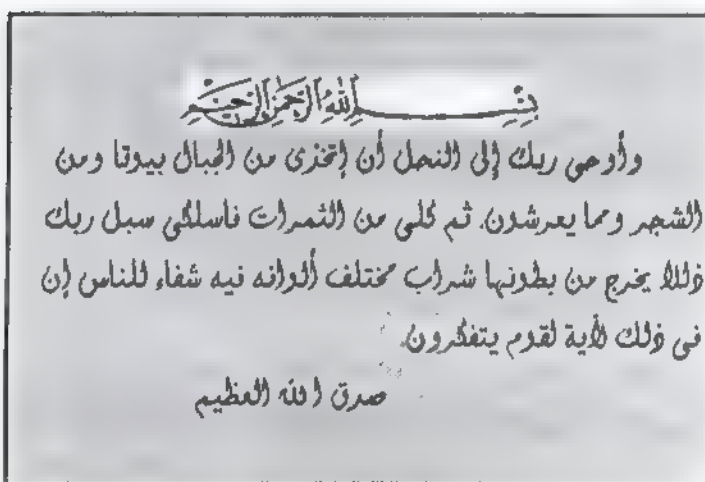 بسم الله الرحمن الرحيم
وأوحى ربك إلى النحل أن إتخذى من الجبال بيوتا ومن
الشجر ومما يعرشون. ثم كلى من الثمرات فاسلكى سبل ربك
ذللا يخرج من بطونها شراب مختلف ألوانه فيه شفاء للناس إن
فى ذلك لأية لقوم يتفكرون.
صدق الله العظيم